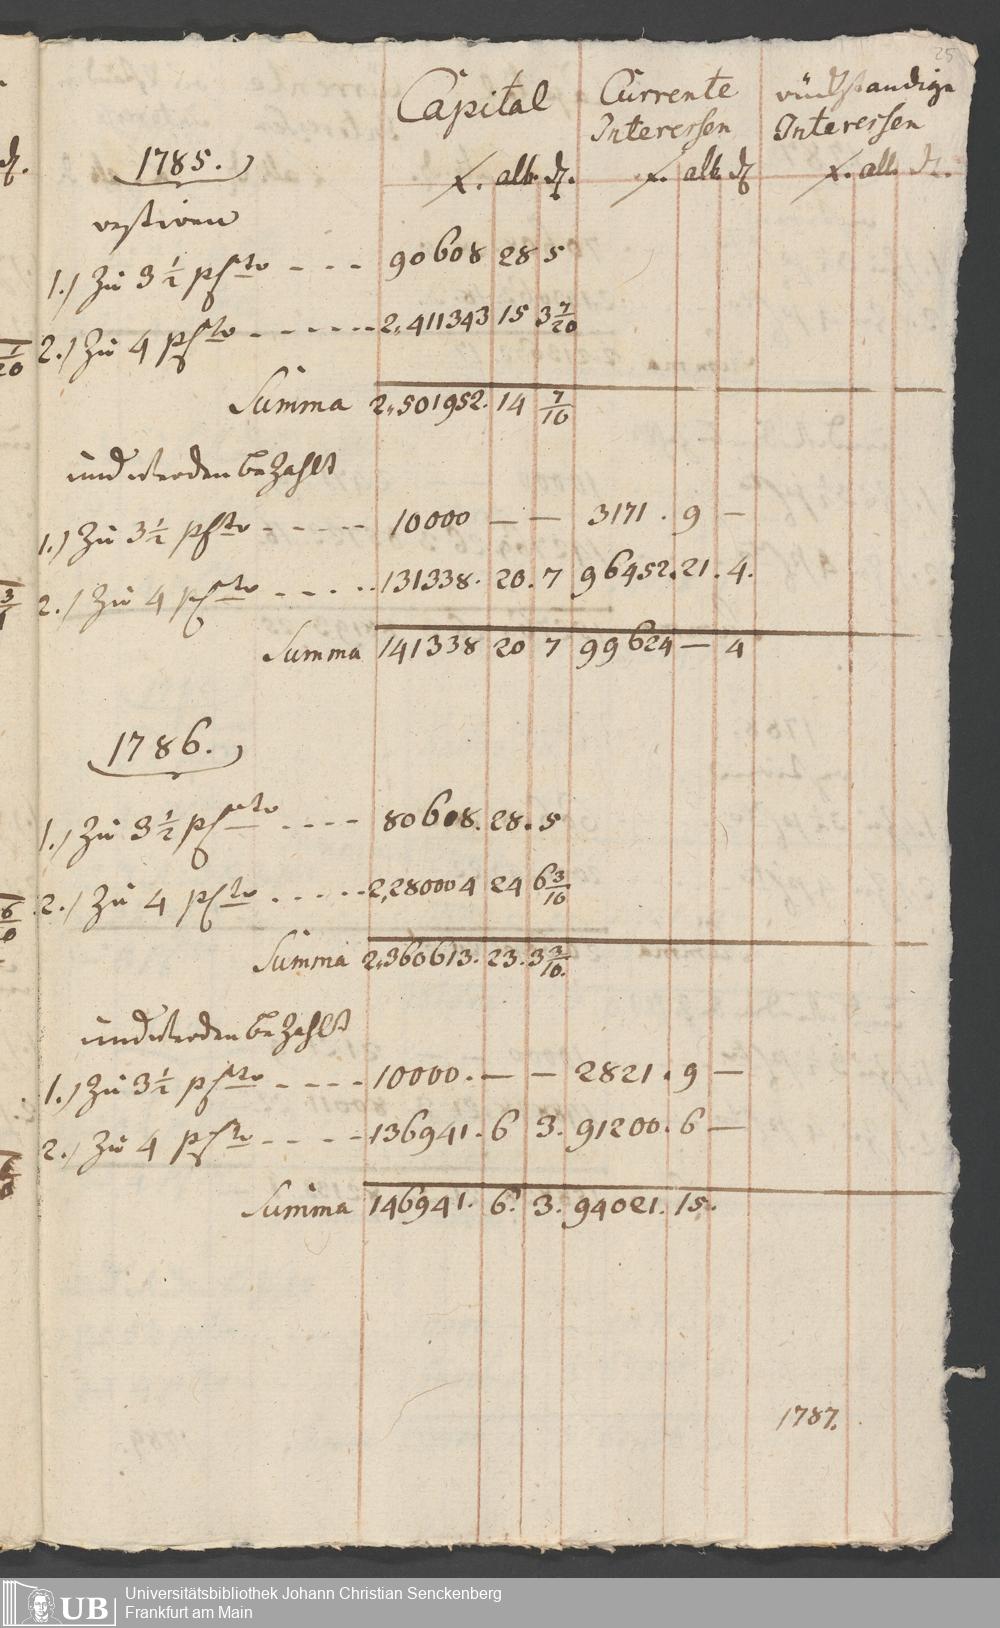 25
Capital
Currente
Interessen
rückständige
Interessen
1785.
f. alb. d. f. alb d f. alb. d.
restiren
1.) Zu 3 1/2 pCto --- 90608 28 5
2.) Zu 4 pCto ------ 2,411343 15 3 7/20
Summa 2,501952. 14 7/10
und werden bezahlt
1.) Zu 3 1/2 pCto ----- 10000 — — 3171. 9 —
2.) Zu 4 pCto ----- 131338. 20. 7 96452. 21. 4.
Summa 141338 20 7 99624 — 4
1786.
1.) Zu 3 1/2 pCto ---- 80608. 28. 5
2.) Zu 4 pCto ----- 2,280004 24 6 3/10
Summa 2,360613. 23. 3 3/10.
und werden bezahlt
1.) Zu 3 1/2 pCto ---- 10000. — — 2821. 9 —
2.) Zu 4 pCto ---- 136941. 6 3. 91200. 6 —
Summa 146941. 6. 3. 94021. 15.
1787.
UB
Universitätsbibliothek Johann Christian Senckenberg
Frankfurt am Main